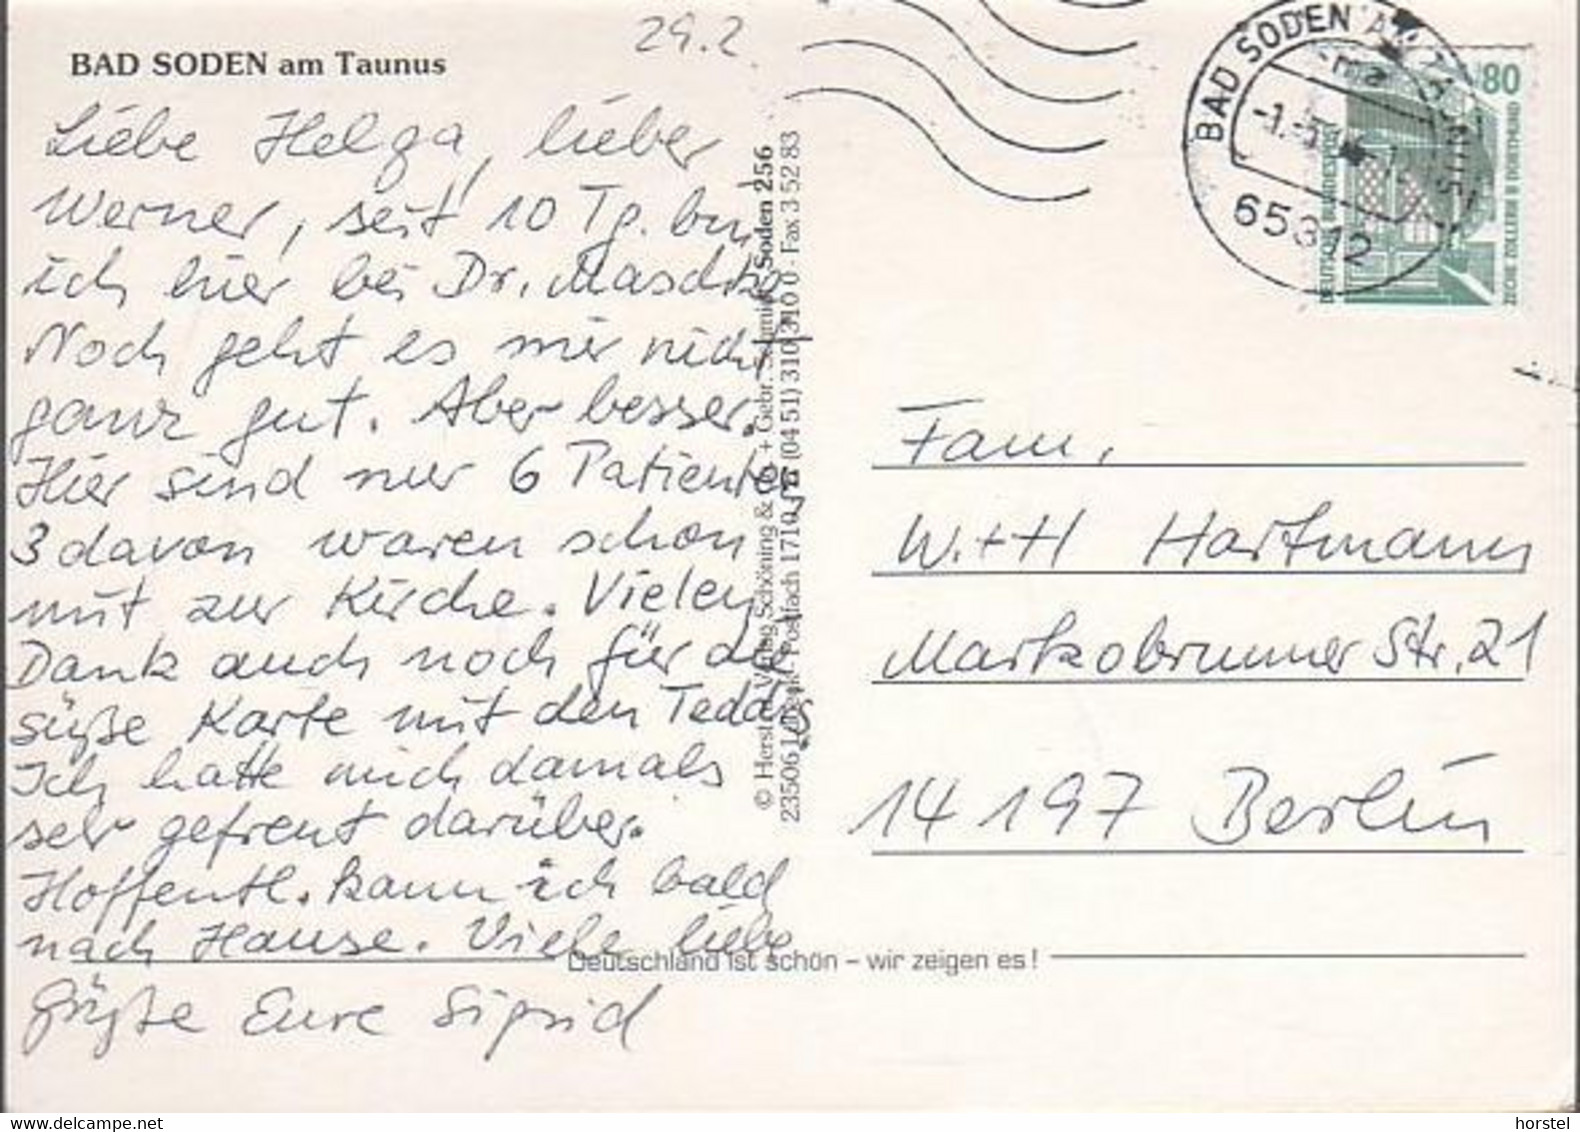 29.2
BAD SODEN am Taunus
Liebe Helga, lieber
Werner, seit 10 Tg. bin
ich hier bei Dr. Maschko.
Noch geht es mir nicht
ganz gut. Aber besser.
Hier sind nur 6 Patienten
3 davon waren schon
mit zur Kirche. Vielen
Dank auch noch für die
süße Karte mit den Teddis.
Ich hatte mich damals
sehr gefreut darüber.
Hoffentl. kann ich bald
nach Hause. Viele liebe
Grüße Eure Sigrid
© Verlag Schöning & Co. + Gebr. Schmidt Soden 256
Postfach 1710 (04 51) 310 310 0 · Fax 3 52 83
BAD SODEN AM TAUNUS
65812
80
DEUTSCHE BUNDESPOST
ZECHE ZOLLERN II DORTMUND
Fam,
W.+H Hartmann
Markobrunner Str. 21
14197 Berlin
Deutschland ist schön – wir zeigen es!
horstel